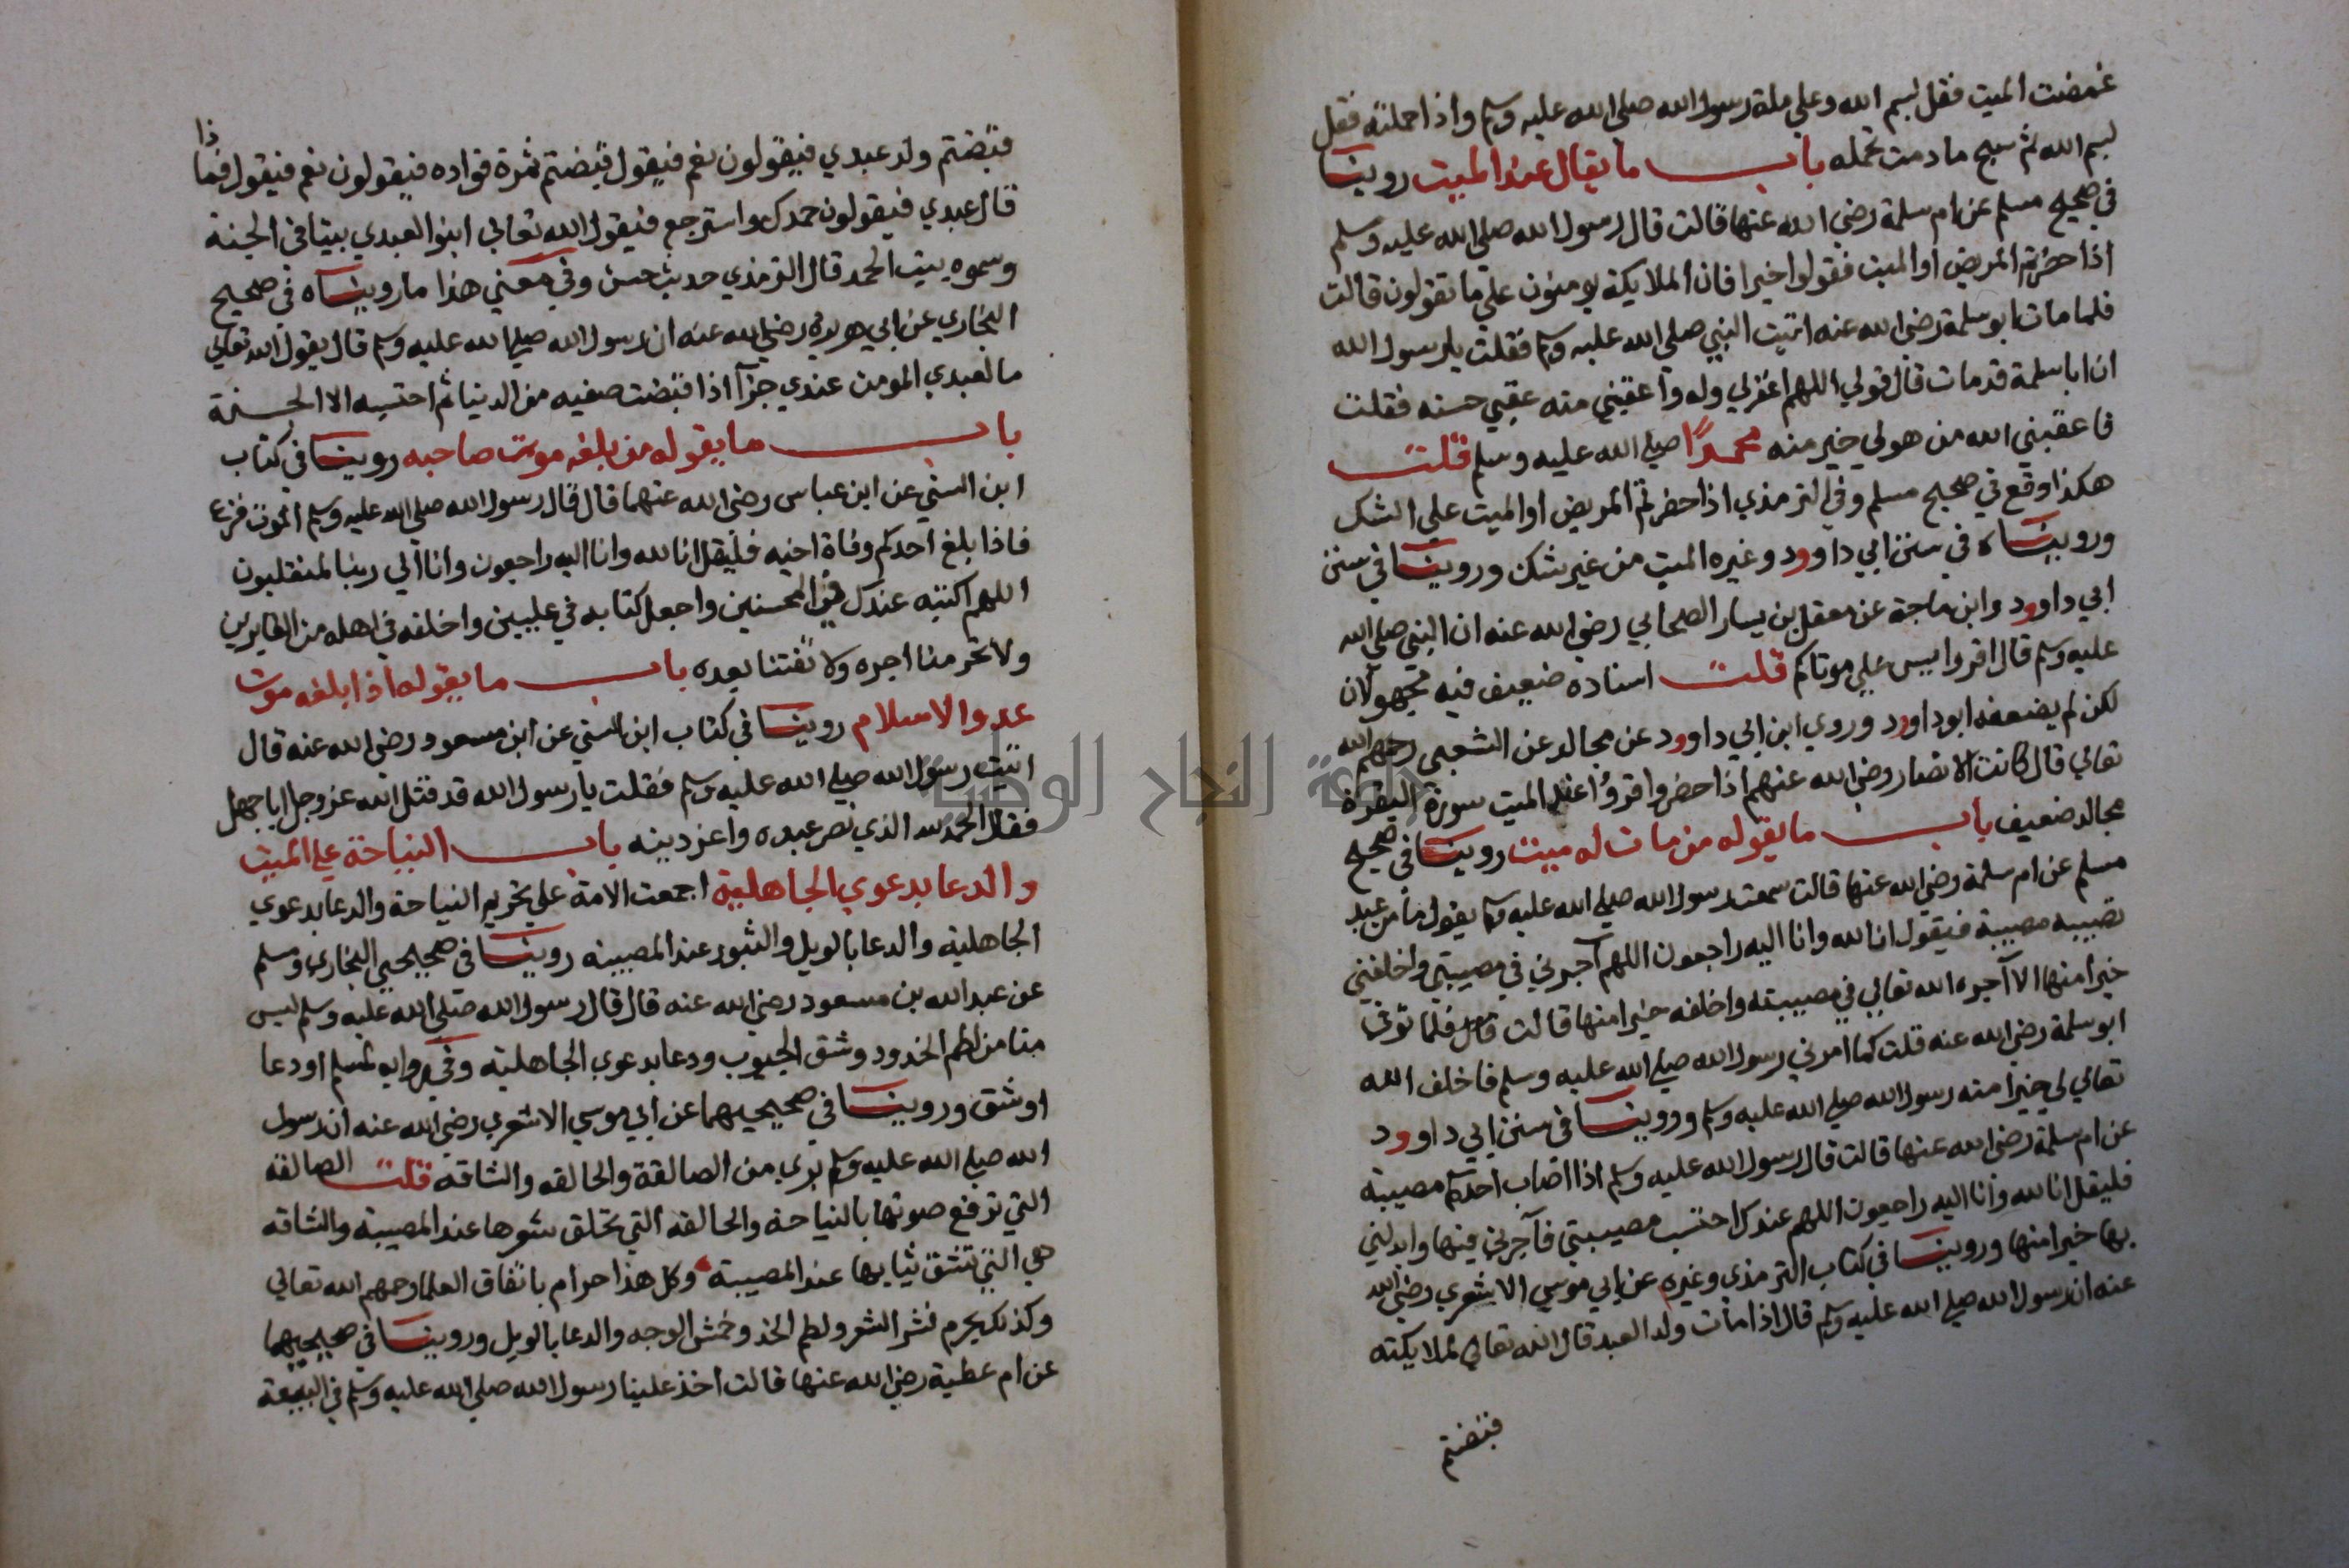 غمضت الميت فقل بسم الله وعلي ملة رسول الله صلي الله عليه وسلم واذا حملته فقل
بسم الله ثم سبح ما دمت تحمله باب ما يقال عند الميت روينا
في صحيح مسلم عن ام سلمة رضي الله عنها قالت قال رسول الله صلي الله عليه وسلم
اذا حضرتم المريض او الميت فقولوا خيرا فان الملايكة يومنون علي ما تقولون قالت
فلما مات ابو سلمة رضي الله عنه اتيت النبي صلي الله عليه وسلم فقلت يا رسول الله
ان ابا سلمة قد مات قال قولي اللهم اغفر لي وله واعقبني منه عقبي حسنه فقلت
فاعقبني الله من هو لي خير منه محمدًا صلي الله عليه وسلم قلت
هكذا وقع في صحيح مسلم وفي الترمذي اذا حضرتم المريض او الميت علي الشك
وروينـاه في سنن ابي داوود وغيره الميت من غير شك وروينا في سنن
ابي داوود وابن ماجة عن معقل بن يسار الصحابي رضي الله عنه ان النبي صلي الله
عليه وسلم قال اقروا يس علي موتاكم قلت اسناده ضعيف فيه مجهولان
لكن لم يضعفه ابو داوود وروي ابن ابي داوود عن مجالد عن الشعبي رحمهم الله
تعالي قال كانت الانصار رضي الله عنهم اذا حضروا قروا عند الميت سورة البقرة
مجالد ضعيف باب ما يقوله من مات له ميت روينا في صحيح
مسلم عن ام سلمة رضي الله عنها قالت سمعت رسول الله صلي الله عليه وسلم يقول ما من عبد
تصيبه مصيبة فيقول انا لله وانا اليه راجعون اللهم آجرني في مصيبتي واخلفني
خيرا منها الا آجره الله تعالي في مصيبته واخلفه خيرا منها قالت فلما توفي
ابو سلمة رضي الله عنه قلت كما امرني رسول الله صلي الله عليه وسلم فاخلف الله
تعالي لي خيرا منه رسول الله صلي الله عليه وسلم وروينا في سنن ابي داوود
عن ام سلمة رضي الله عنها قالت قال رسول الله صلي الله عليه وسلم اذا اصاب احدكم مصيبة
فليقل انا لله وانا اليه راجعون اللهم عندك احتسب مصيبتي فآجرني فيها وابدلني
بها خيرا منها وروينا في كتاب الترمذي وغيره عن ابي موسي الاشعري رضي الله
عنه ان رسول الله صلي الله عليه وسلم قال اذا مات ولد العبد قال الله تعالي لملايكته
قبضتم
قبضتم ولد عبدي فيقولون نعم فيقول قبضتم ثمرة فواده فيقولون نعم فيقول فماذا
قال عبدي فيقولون حمدك واسترجع فيقول الله تعالي ابنوا لعبدي بيتا في الجنة
وسموه بيت الحمد قال الترمذي حديث حسن وفي معني هذا ما رويناه في صحيح
البخاري عن ابي هريرة رضي الله عنه ان رسول الله صلي الله عليه وسلم قال يقول الله تعالي
ما لعبدي المومن عندي جزآ اذا قبضت صفيه من الدنيا ثم احتسبه الا الجنة
باب ما يقوله من بلغه موت صاحبه روينا في كتاب
ابن السني عن ابن عباس رضي الله عنهما قال قال رسول الله صلي الله عليه وسلم الموت فزع
فاذا بلغ احدكم وفاة اخيه فليقل انا لله وانا اليه راجعون وانا الي ربنا لمنقلبون
اللهم اكتبه عندك في المحسنين واجعل كتابه في عليين واخلفه في اهله من الغابرين
ولا تحرمنا اجره ولا تفتنا بعده باب ما يقوله اذا بلغه موت
عدو الاسلام روينا في كتاب ابن السني عن ابن مسعود رضي الله عنه قال
اتيت رسول الله صلي الله عليه وسلم فقلت يا رسول الله قد قتل الله عز وجل ابا جهل
فقال الحمد لله الذي نصر عبده واعز دينه باب النياحة علي الميت
والدعا بدعوي الجاهلية اجمعت الامة علي تحريم النياحة والدعا بدعوي
الجاهلية والدعا بالويل والثبور عند المصيبة روينا في صحيحي البخاري ومسلم
عن عبد الله بن مسعود رضي الله عنه قال قال رسول الله صلي الله عليه وسلم ليس
منا من لطم الخدود وشق الجيوب ودعا بدعوي الجاهلية وفي رواية لمسلم او دعا
او شق وروينا في صحيحيهما عن ابي موسي الاشعري رضي الله عنه ان رسول
الله صلي الله عليه وسلم بري من الصالقة والحالقه والشاقه قلت الصالقة
التي ترفع صوتها بالنياحة والحالقه التي تحلق شعرها عند المصيبة والشاقه
هي التي تشق ثيابها عند المصيبة وكل هذا حرام باتفاق العلما رحمهم الله تعالي
وكذلك يحرم نشر الشعر ولطم الخد وخمش الوجه والدعا بالويل وروينا في صحيحيهما
عن ام عطية رضي الله عنها قالت اخذ علينا رسول الله صلي الله عليه وسلم في البيعة
جامعة النجاح الوطنية